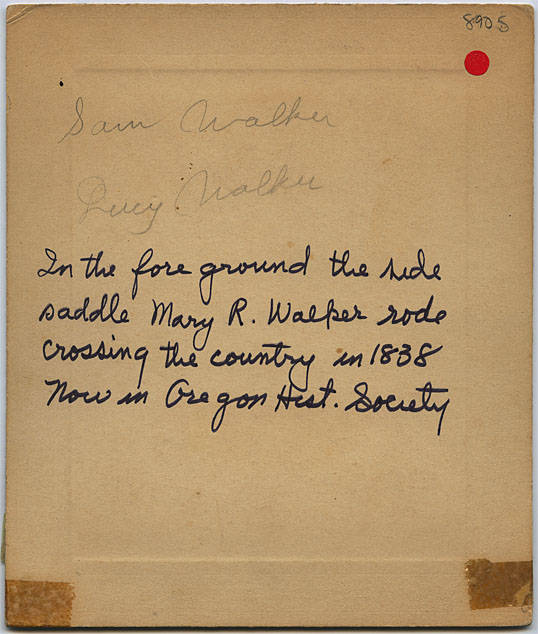 8905
Sam Walker
Lucy Walker
In the fore ground the side
saddle Mary R. Walker rode
crossing the country in 1838
Now in Oregon Hist. Society